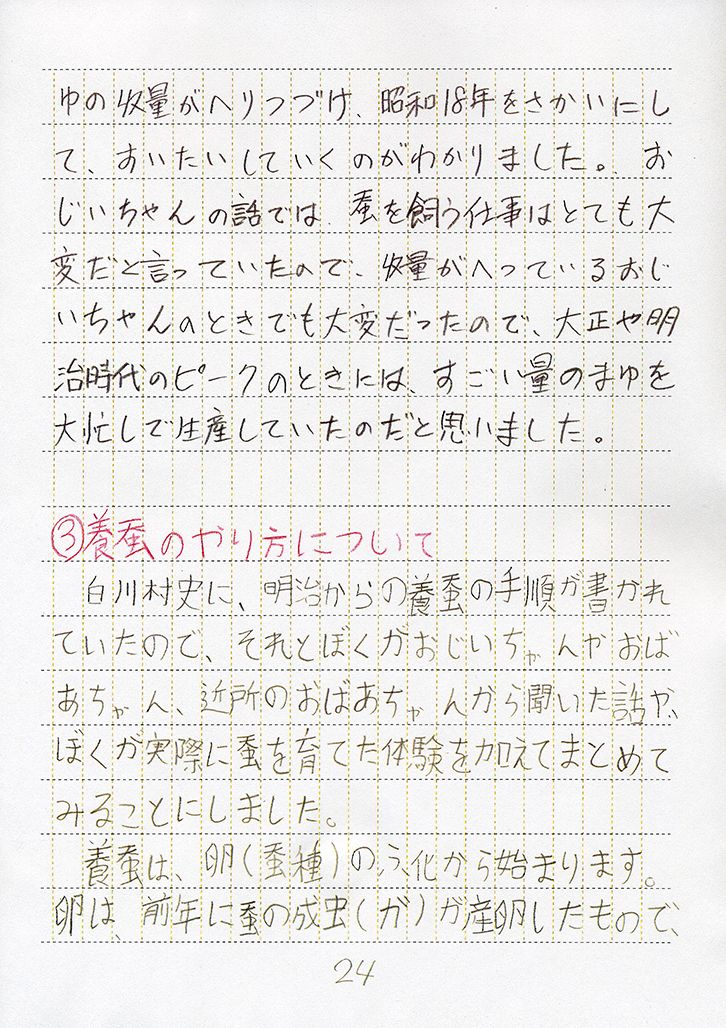 ゆの収量がへりつづけ、昭和18年をさかいにし
て、すいたいしていくのがわかりました。お
じいちゃんの話では、蚕を飼う仕事はとても大
変だと言っていたので、収量がへっているおじ
いちゃんのときでも大変だったので、大正や明
治時代のピークのときには、すごい量のまゆを
大忙しで生産していたのだと思いました。
③養蚕のやり方について
白川村史に、明治からの養蚕の手順が書かれ
ていたので、それとぼくがおじいちゃんやおば
あちゃん、近所のおばあちゃんから聞いた話や、
ぼくが実際に蚕を育てた体験を加えてまとめて
みることにしました。
養蚕は、卵(蚕種)のふ化から始まります。
卵は、前年に蚕の成虫(ガ)が産卵したもので、
24